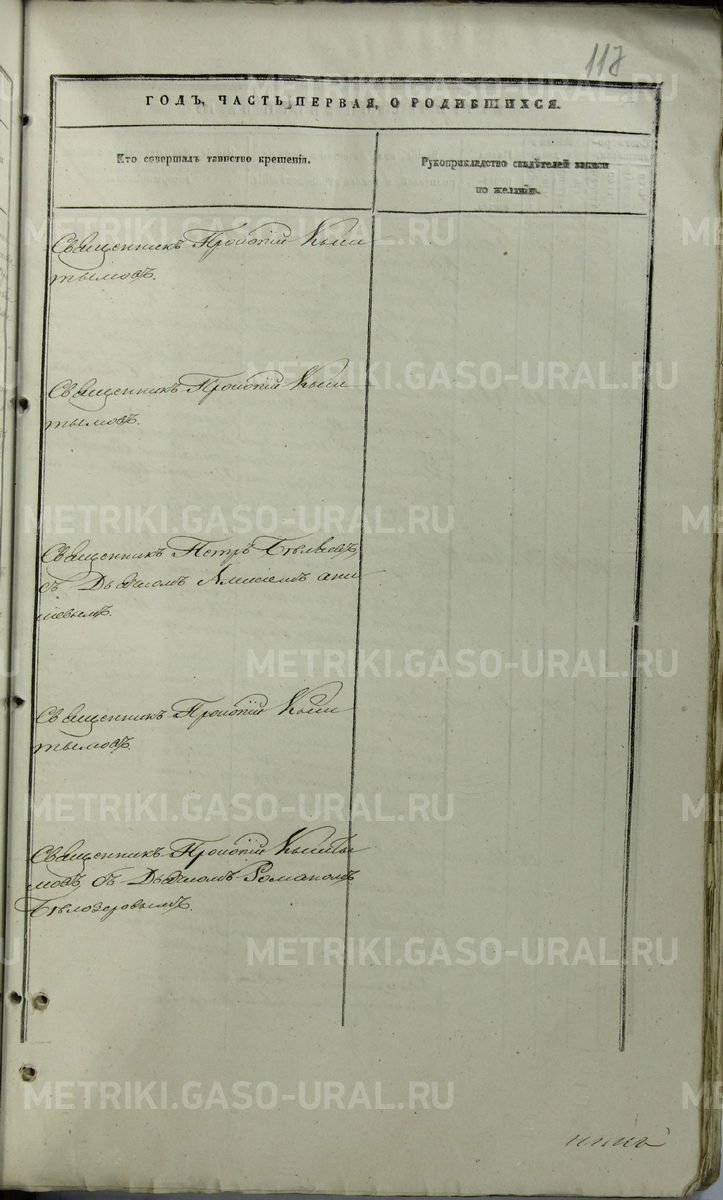 117
ГОДЪ, ЧАСТЬ ПЕРВАЯ, О РОДИВШИХСЯ.
Кто совершалъ таинство крещенія.
Рукоприкладство свидѣтелей записи
по желанію.
Священникъ Прокопій Кыш
тымовъ.
Священникъ Прокопій Кыш
тымовъ.
Священникъ Петръ Бѣльковъ
съ Дьякономъ Алексіемъ
Священникъ Прокопій Кыш
тымовъ.
Священникъ Прокопій Кышты
мовъ съ Дьякономъ Романомъ
Бѣлозеровымъ.
METRIKI.GASO-URAL.RU